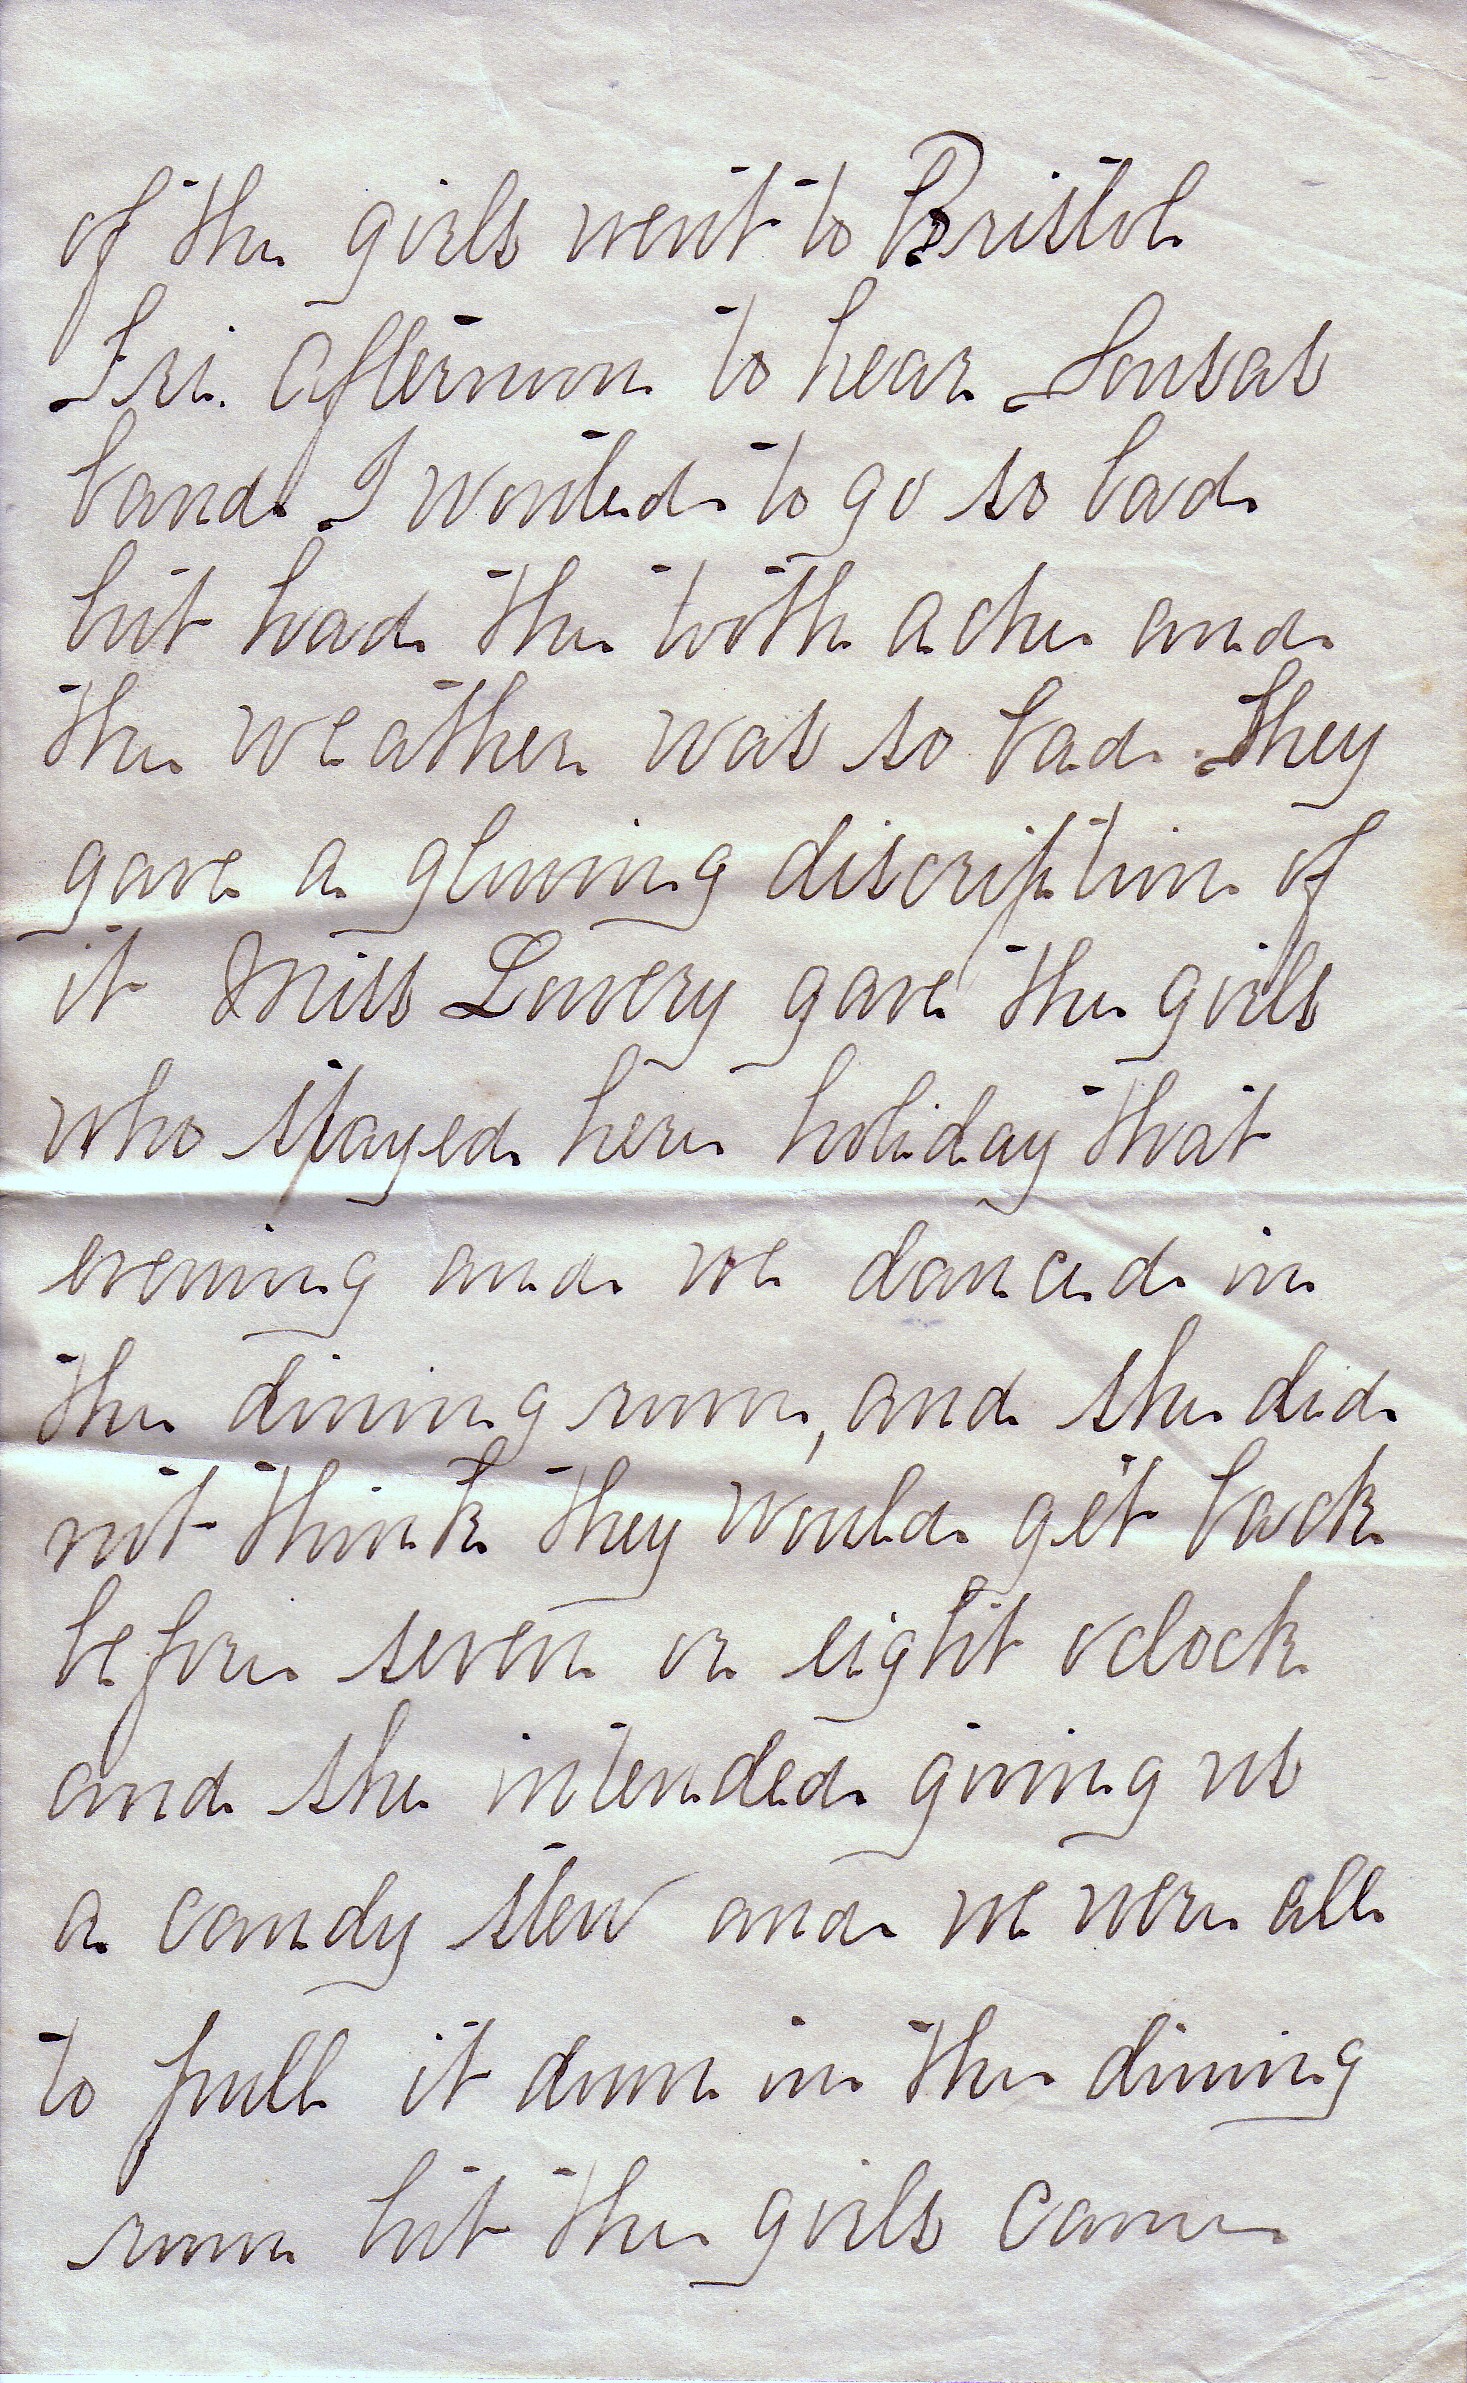 of the girls went to Bristol
Fri. afternoon to hear Sousas
band. I wonted to go so bad
but had the tooth ache and
the weather was so bad. They
gave a glowing discription of
it Miss Lowery gave the girls
who stayed here holiday that
evening and we danced in
the dining room, and she did
not think they would get back
before seven or eight oclock
and she intended giving us
a candy stew and we were all
to pull it down in the dining
room but the girls came